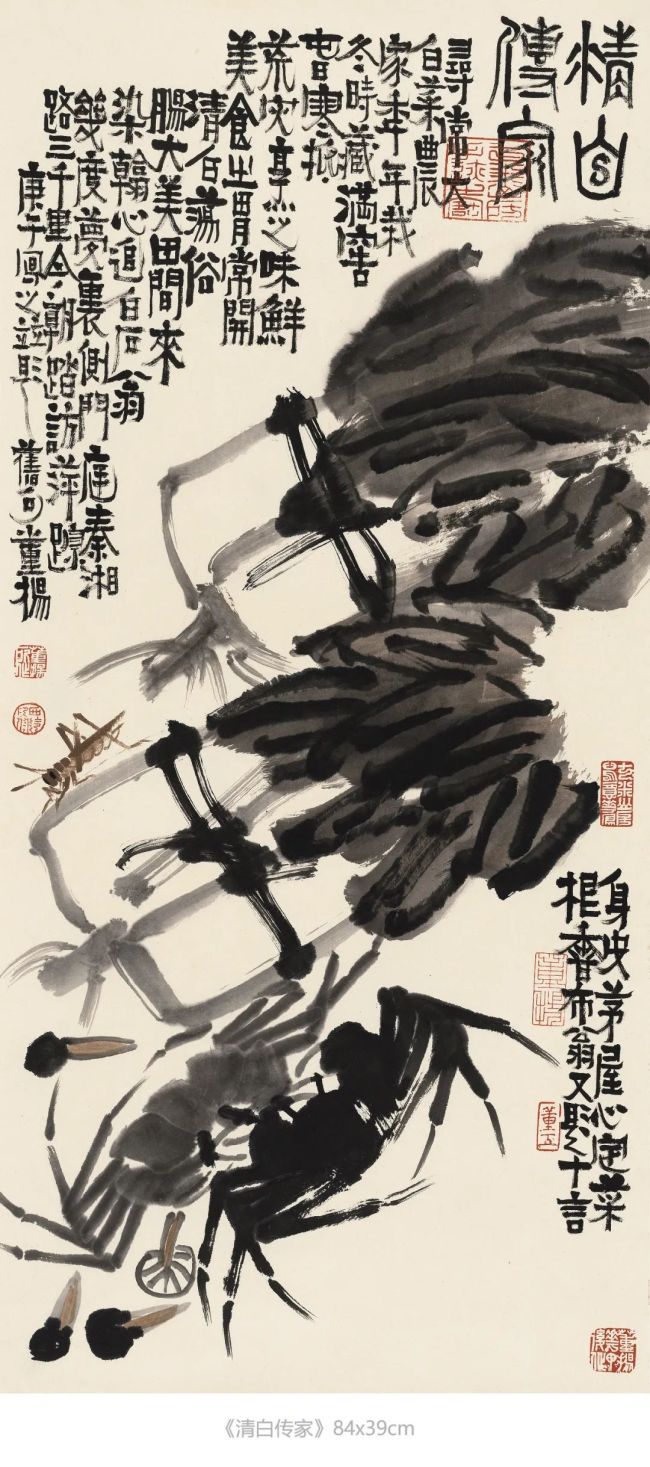 清白
傳家
尋常大
白菜農
家年年栽
冬時藏滿窖
寒抵
荒災烹之味鮮
美食之胃常開
清白蕩俗
腸大美田間來
染翰心追白石翁
幾度夢裏側門庭秦湘
路三千里今朝踏訪萍蹤
庚子寫之並題舊句董揚
身安茅屋心定菜
根香布翁又題十言
《清白传家》84x39cm